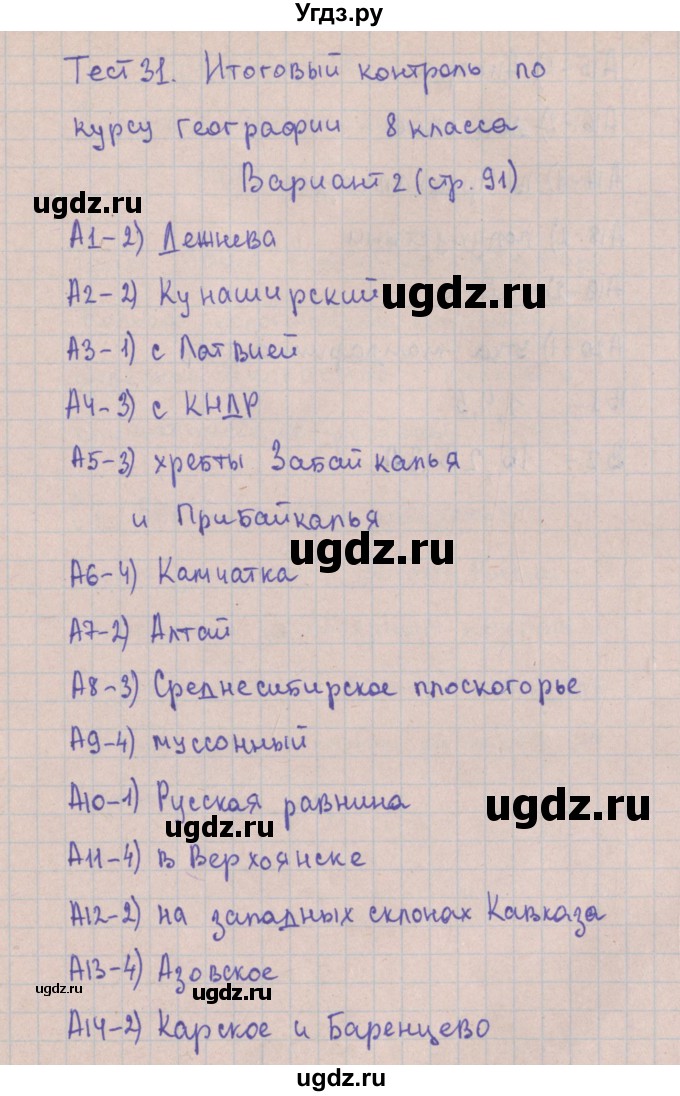 Угдз.ру
Тест 31. Итоговый контроль по
курсу географии 8 класса
Вариант 2 (стр. 91)
ugdz.ru
А1-2) Дежнева
А2-2) Кунаширский
ugdz.ru
А3-1) с Латвией
А4-3) с КНДР
А5-3) хребты Забайкалья
и Прибайкалья
ugdz.ru
А6-4) Камчатка
А7-2) Алтай
А8-3) Среднесибирское плоскогорье
А9-4) муссонный
А10-1) Русская равнина
ugdz.ru
ugdz.ru
А11-4) в Верхоянске
А12-2) на западных склонах Кавказа
А13-4) Азовское
ugdz.ru
ugdz.ru
А14-2) Карское и Баренцево
ugdz.ru